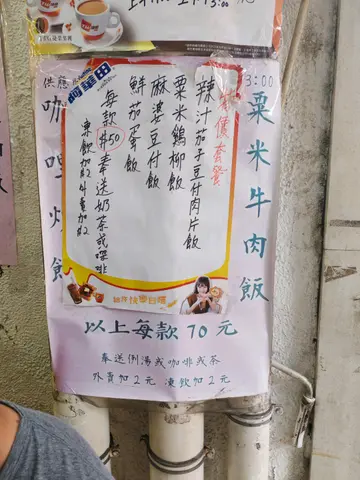 3:00
粟米牛肉飯
特價套餐
辣汁茄子豆付肉片飯
粟米鷄柳飯
麻婆豆付飯
鮮茄蛋飯
每款$50奉送奶茶或啡
凍飲加2外賣加2
阿華田
供應
以上每款 70 元
奉送例湯或咖啡或茶
外賣加 2 元 凍飲加 2 元